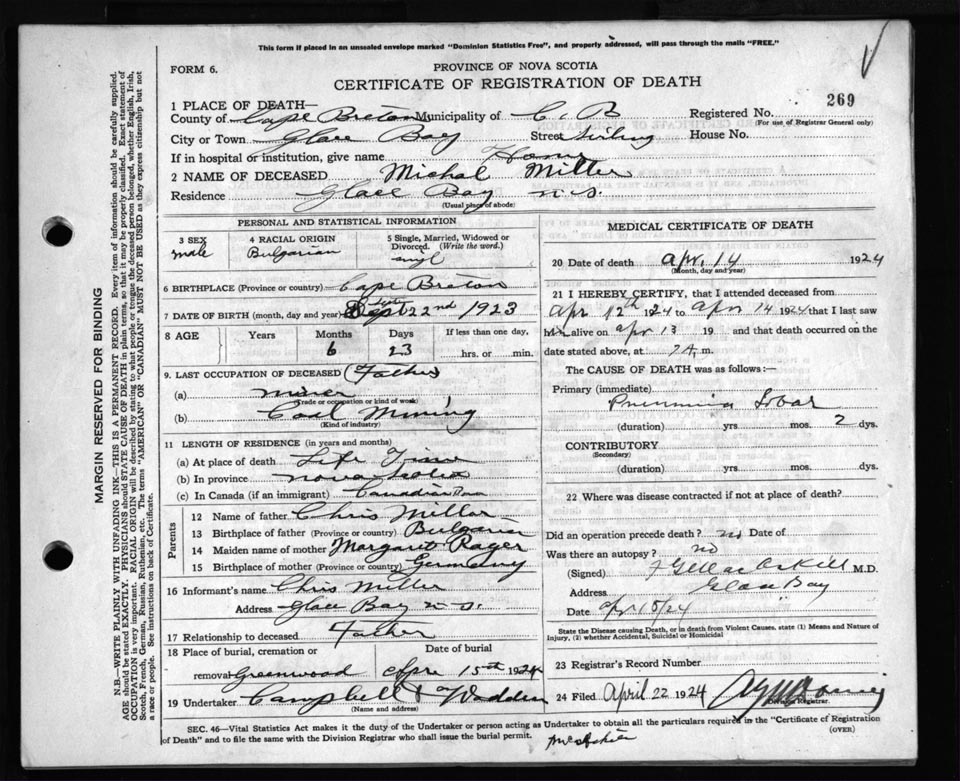 This form if placed in an unsealed envelope marked "Dominion Statistics Free", and properly addressed, will pass through the mails "FREE."
FORM 6.
PROVINCE OF NOVA SCOTIA
CERTIFICATE OF REGISTRATION OF DEATH
269
1 PLACE OF DEATH—
County of Cape Breton Municipality of C. B Registered No.
(For use of Registrar General only)
City or Town Glace Bay Street Sterling House No.
If in hospital or institution, give name Home
2 NAME OF DECEASED Michal Miller
Residence Glace Bay N.S.
(Usual place of abode)
PERSONAL AND STATISTICAL INFORMATION
3 SEX male
4 RACIAL ORIGIN Bulgarian
5 Single, Married, Widowed or Divorced. (Write the word.) singl
6 BIRTHPLACE (Province or country) Cape Breton
7 DATE OF BIRTH (month, day and year) Sept 22nd 1923
8 AGE Years Months Days If less than one day,
6 23 hrs. or min.
9. LAST OCCUPATION OF DECEASED (Father)
(a) miner
(Trade or occupation or kind of work)
(b) Coal Mining
(Kind of industry)
11 LENGTH OF RESIDENCE (in years and months)
(a) At place of death Life Time
(b) In province Nova Scotia
(c) In Canada (if an immigrant) Canadian Born
Parents
12 Name of father Chris Miller
13 Birthplace of father (Province or country) Bulgaria
14 Maiden name of mother Margaret Rager
15 Birthplace of mother (Province or country) Germany
16 Informant's name Chris Miller
Address Glace Bay N.S.
17 Relationship to deceased Father
18 Place of burial, cremation or removal Greenwood
Date of burial Apr 15th 1924
19 Undertaker Campbell & Wadden
(Name and address)
MEDICAL CERTIFICATE OF DEATH
20 Date of death Apr. 14 1924
(Month, day and year)
21 I HEREBY CERTIFY, that I attended deceased from
Apr 12th 1924 to Apr 14 1924 that I last saw
him alive on apr 13 19 and that death occurred on the
date stated above, at 7 A. m.
The CAUSE OF DEATH was as follows:—
Primary (immediate)
Pneumonia Lobar
(duration) yrs mos. 2 dys.
CONTRIBUTORY
(Secondary)
(duration) yrs. mos. dys.
22 Where was disease contracted if not at place of death?
Did an operation precede death? no Date of
Was there an autopsy? no
(Signed) M.D.
Address Glace Bay
Date apr 15/24
State the Disease causing Death, or in death from Violent Causes, state (1) Means and Nature of Injury, (2) whether Accidental, Suicidal or Homicidal
23 Registrar's Record Number
24 Filed April 22 1924
Division Registrar.
SEC. 46—Vital Statistics Act makes it the duty of the Undertaker or person acting as Undertaker to obtain all the particulars required in the "Certificate of Registration
of Death" and to file the same with the Division Registrar who shall issue the burial permit.
(OVER)
MARGIN RESERVED FOR BINDING
N.B.—WRITE PLAINLY WITH UNFADING INK—THIS IS A PERMANENT RECORD. Every item of information should be carefully supplied.
AGE should be stated EXACTLY. PHYSICIANS should STATE CAUSE OF DEATH in plain terms, so that it may be properly classified. Exact statement of
OCCUPATION is very important. RACIAL ORIGIN will be described by stating to what people or tongue the deceased person belonged, whether English, Irish,
Scotch, French, German, Russian, Ruthenian, etc. The terms "AMERICAN" OR "CANADIAN" MUST NOT BE USED as they express citizenship but not
a race or people. See instructions on back of Certificate.